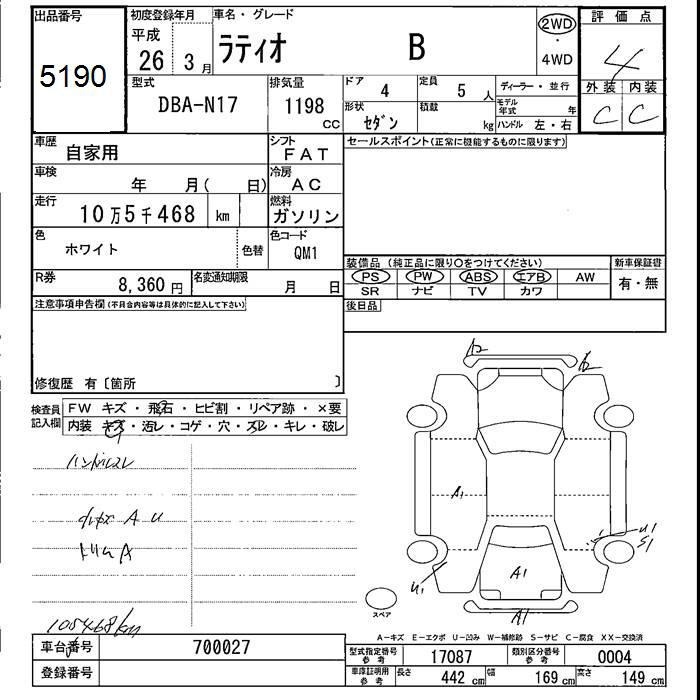 出品番号 初度登録年月 車名・グレード 評価点
5190 平成 26 3月 ラティオ B 2WD ・ 4WD 4
外装 内装
C C
型式 DBA-N17 排気量 1198 CC ドア 4 定員 5人 ディーラー・並行
形状 セダン 積載 kg モデル年式 年 ハンドル 左・右
車歴 自家用 シフト FAT セールスポイント(正常に機能するものに限ります)
車検 年 月( 日) 冷房 AC
走行 10万5千468 km 燃料 ガソリン
色 ホワイト 色替 色コード QM1
装備品(純正品に限り○をつけてください) 新車保証書
R券 8,360円 名変通知期限 月 日 PS PW ABS エアB AW 有・無
SR ナビ TV カワ
注意事項申告欄(不具合内容等は具体的に記入して下さい) 後日品
修復歴 有〔箇所 〕
検査員記入欄 FW キズ・飛石・ヒビ割・リペア跡・×要
内装 キズ・汚レ・コゲ・穴・スレ・キレ・破レ
ハンドルスレ
A U
トリムA
105468km
A1
A1
A1
U1
U1
S1
スペア
A-キズ E-エクボ U-凹み W-補修跡 S-サビ C-腐食 XX-交換済
車台番号 700027 型式指定番号 参考 17087 類別区分番号 参考 0004
登録番号 車庫証明用 参考 長さ 442 cm 幅 169 cm 高さ 149 cm